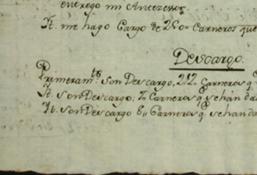 entrego mi Antecesor
It. me hago Cargo de 250 Carneros que
Descargo.
Primeramte. son Descargo, 212 Carneros q
It. son Descargo, 7 Carneros q se han da
It. son Descargo 6 Carneros q se han da